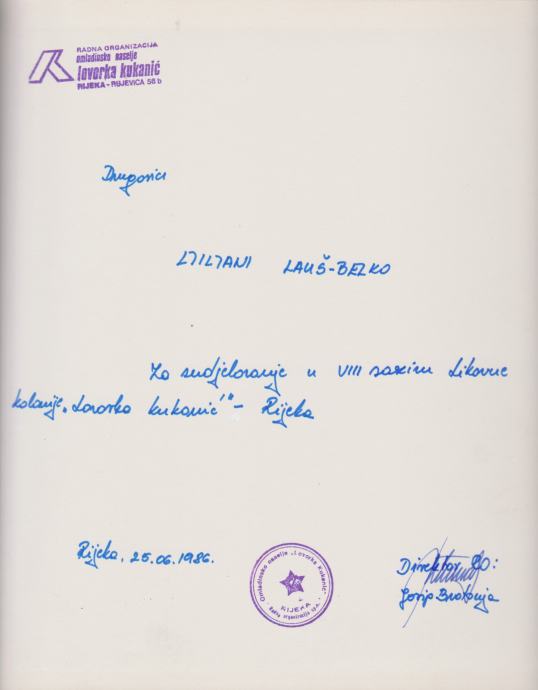 RADNA ORGANIZACIJA
omladinsko naselje
lovorka kukanić
RIJEKA - RUJEVICA 56 b
Drugarici
LJILJANI LAUŠ-BELKO
Za sudjelovanje u VIII Likovne
kolonije „Lovorka kukanić" - Rijeka
Rijeka, 25.06.1986.
Omladinsko naselje „Lovorka Kukanić"
RIJEKA
Direktor RO:
Josip